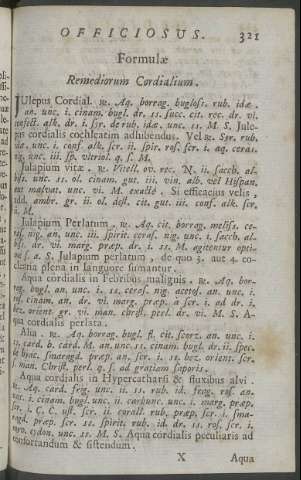 OFFICIOSUS. 321
Formulæ
Remediorum Cordialium.
JUlepus Cordial. ℞. Aq. borrag. bugloss. rub. idæ.
an. unc. i. cinam. bugl. dr. ss. succ. cit. rec. dr. vi.
confect. alk. dr. i. syr. de rub. idæ. unc. ss. M. S. Jule-
pus cordialis cochleatim adhibendus. Vel ℞. Syr. rub.
idæ. unc. i. conf. alk. scr. ii. spir. ros. scr. i. aq. ceras.
nig. unc. iii. sp. vitriol. q. s. M.
Julapium vitæ. ℞. Vitell. ov. rec. N. ii. sacch. al-
biss. unc. ss. ol. cinam. gut. iii. vin. alb. vel Hispan.
aut malvat. unc. vi. M. exactè. Si efficacius velis,
add. ambr. gr. ii. ol. dest. cit. gut. iii. conf. alk. scr.
ii. M.
Julapium Perlatum, ℞. Aq. cit. borrag. meliss. ce-
ras. nig. an. unc. iii. spirit. ceras. nig. unc. i. sacch. al-
biss. dr. vi. marg. præp. dr. i. ss. M. agitentur opti-
me s. a. S. Julapium perlatum, de quo 3. aut 4. co-
clearia plena in languore sumantur.
Aqua cordialis in Febribus malignis. ℞. Aq. bor-
rag. bugl. an. unc. i. ss. ceras. nig. acetos. an. unc. i.
ros. cinam. an. dr. vi. marg. præp. a scr. i. ad dr. i.
bez. orient. gr. vi. man. christ. perl. dr. vi. M. S. A-
qua cordialis perlata.
Alia. ℞. Aq. borrag. bugl. fl. cit. scorz. an. unc. i.
ss. card. b. card. M. an. unc. ss. cinam. bugl. dr. ii. spec.
de hyac. smaragd. præp. an. scr. i. ss. bez. orient. scr.
s. man. Christ. perl. q. s. ad gratiam saporis.
Aqua cordialis in Hypercatharsi & fluxibus alvi.
℞. Aq. card. frig. unc. ii. ss. rub. id. frag. ros. an.
unc. i. cinam. bugl. unc. ii. carbunc. unc. i. marg. præp.
scr. i. C. C. ust. scr. ii. corall. rub. præp. scr. i. sma-
ragd. præp. scr. ss. spirit. rub. id. dr. ss. ros. scr. i.
cydon. unc. ss. M. S. Aqua cordialis peculiaris ad
confortandum & sistendum.
X Aqua